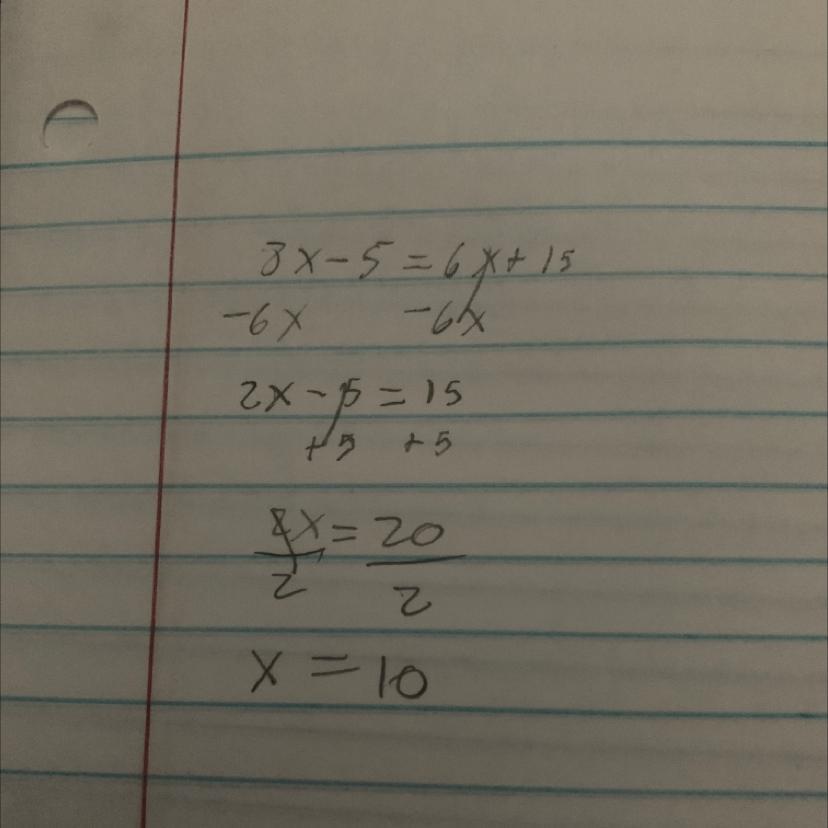 8x - 5 = 6x + 15
-6x -6x
2x - 5 = 15
+5 +5
2x = 20
2 2
x = 10